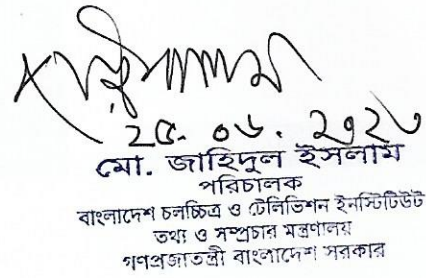 ২৫. ০৬. ২০২৩
মো. জাহিদুল ইসলাম
পরিচালক
বাংলাদেশ চলচ্চিত্র ও টেলিভিশন ইনস্টিটিউট
তথ্য ও সম্প্রচার মন্ত্রণালয়
গণপ্রজাতন্ত্রী বাংলাদেশ সরকার